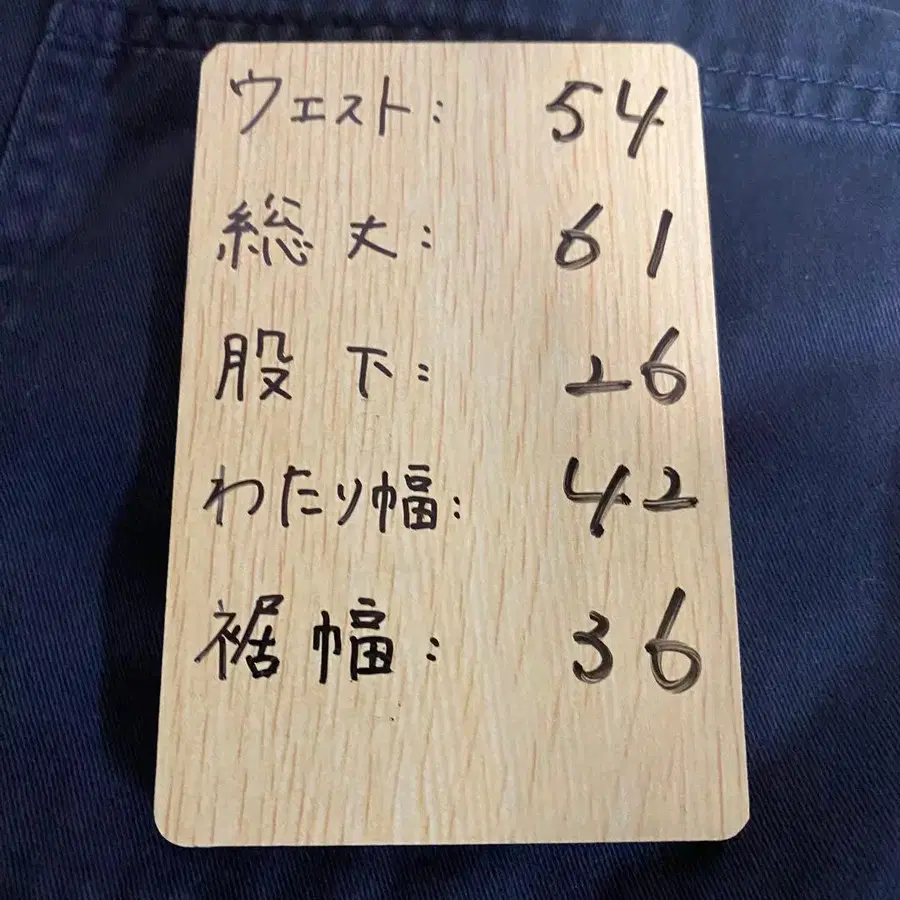 ウエスト: 54
総丈: 61
股下: 26
わたり幅: 42
裾幅: 36